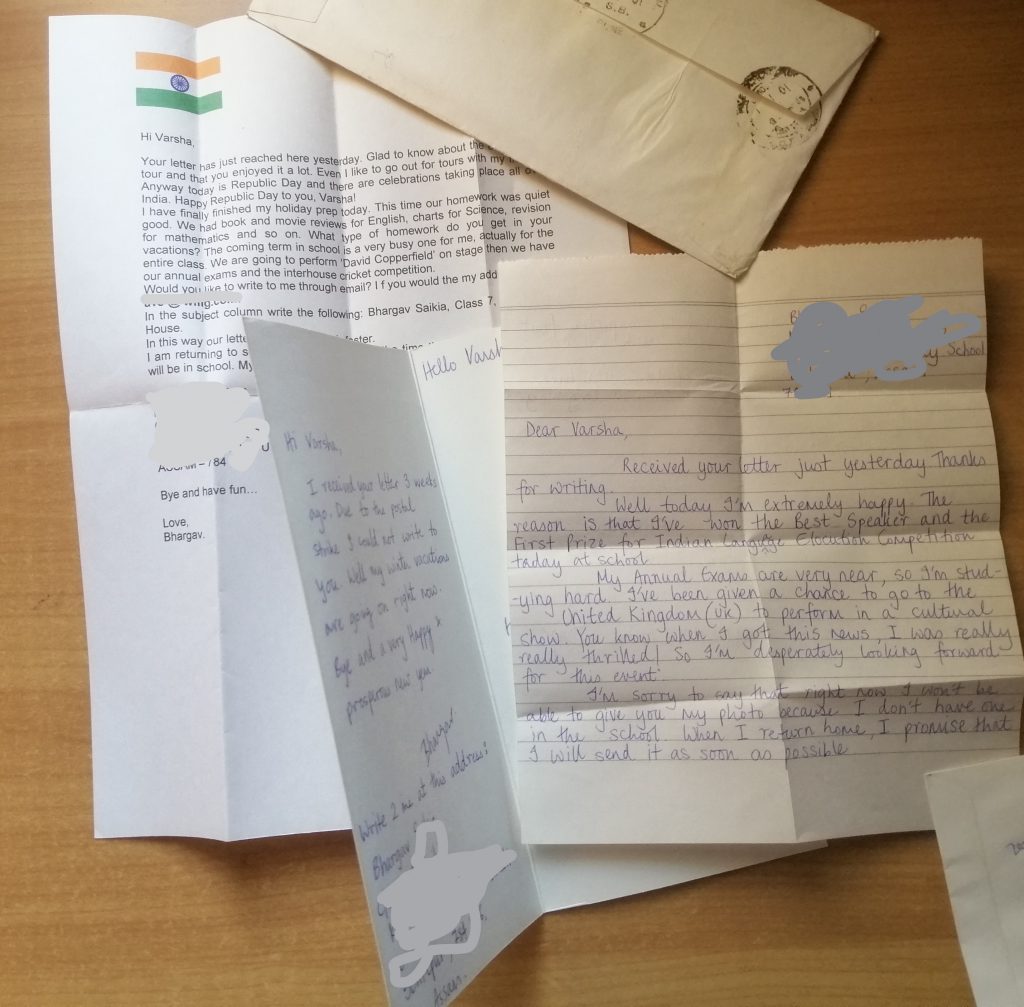 Hi Varsha,
Your letter has just reached here yesterday. Glad to know about the
tour and that you enjoyed it a lot. Even I like to go out for tours with my
Anyway today is Republic Day and there are celebrations taking place all
India. Happy Republic Day to you, Varsha!
I have finally finished my holiday prep today. This time our homework was quiet
good. We had book and movie reviews for English, charts for Science, revision
for mathematics and so on. What type of homework do you get in your
vacations? The coming term in school is a very busy one for me, actually for the
entire class. We are going to perform 'David Copperfield' on stage then we have
our annual exams and the interhouse cricket competition.
Would you like to write to me through email? I f you would the my add
In the subject column write the following: Bhargav Saikia, Class 7,
House.
In this way our
I am returning to
will be in school. My
ASSAM – 784
Bye and have fun...
Love,
Bhargav.
S.B.
Hello
Hi Varsha,
I received your letter 3 weeks
ago. Due to the postal
strike I could not write to
you. Well my winter vacations
are going on right now.
Bye and a very Happy &
prosperous new year
Bhargav
Write 2 me at this address:
Bhargav
Assam.
School
Dear Varsha,
Received your letter just yesterday Thanks
for writing
Well today I'm extremely happy. The
reason is that I've won the Best Speaker and the
First Prize for Indian Language Elocution Competition
today at school
My Annual Exams are very near, so I'm stud-
-ying hard. I've been given a chance to go to the
United Kingdom (UK) to perform in a cultural
show. You know when I got this news, I was really
really thrilled! So I'm desperately looking forward
for this event.
I'm sorry to say that right now I won't be
able to give you my photo because I don't have one
in the school. When I return home, I promise that
I will send it as soon as possible